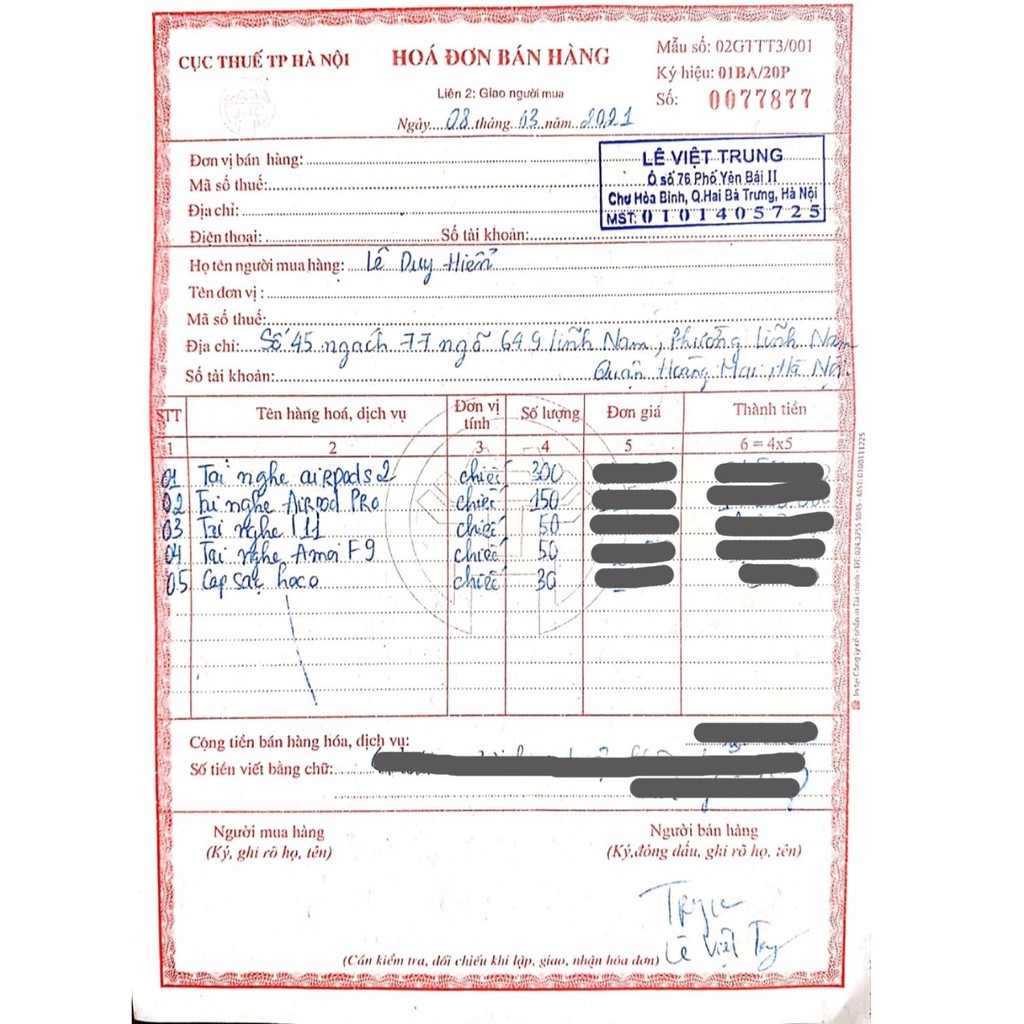 CỤC THUẾ TP HÀ NỘI
HOÁ ĐƠN BÁN HÀNG
Liên 2: Giao người mua
Ngày....08 tháng...03 năm...2021
Mẫu số: 02GTTT3/001
Ký hiệu: 01BA/20P
Số: 0077877
Đơn vị bán hàng:
Mã số thuế:
Địa chỉ:
Điện thoại: Số tài khoản:
LÊ VIỆT TRUNG
Ô số 76 Phố Yên Bái II
Chợ Hòa Bình, Q.Hai Bà Trưng, Hà Nội
MST: 0101405725
Họ tên người mua hàng: Lê Duy Hiển
Tên đơn vị :
Mã số thuế:
Địa chỉ: Số 45 ngách 77 ngõ 649 Lĩnh Nam, Phường Lĩnh Nam
Số tài khoản: Quận Hoàng Mai, Hà Nội.
STT Tên hàng hoá, dịch vụ Đơn vị tính Số lượng Đơn giá Thành tiền
1 2 3 4 5 6 = 4x5
01 Tai nghe airpods 2 chiếc 300
02 Tai nghe Airpod Pro chiếc 150
03 Tai nghe I11 chiếc 50
04 Tai nghe Amoi F9 chiếc 50
05 Cap sạc hoco chiếc 30
Cộng tiền bán hàng hóa, dịch vụ:
Số tiền viết bằng chữ:
Người mua hàng
(Ký, ghi rõ họ, tên)
Người bán hàng
(Ký,đóng dấu, ghi rõ họ, tên)
Lê Việt
(Cần kiểm tra, đối chiếu khi lập, giao, nhận hóa đơn)